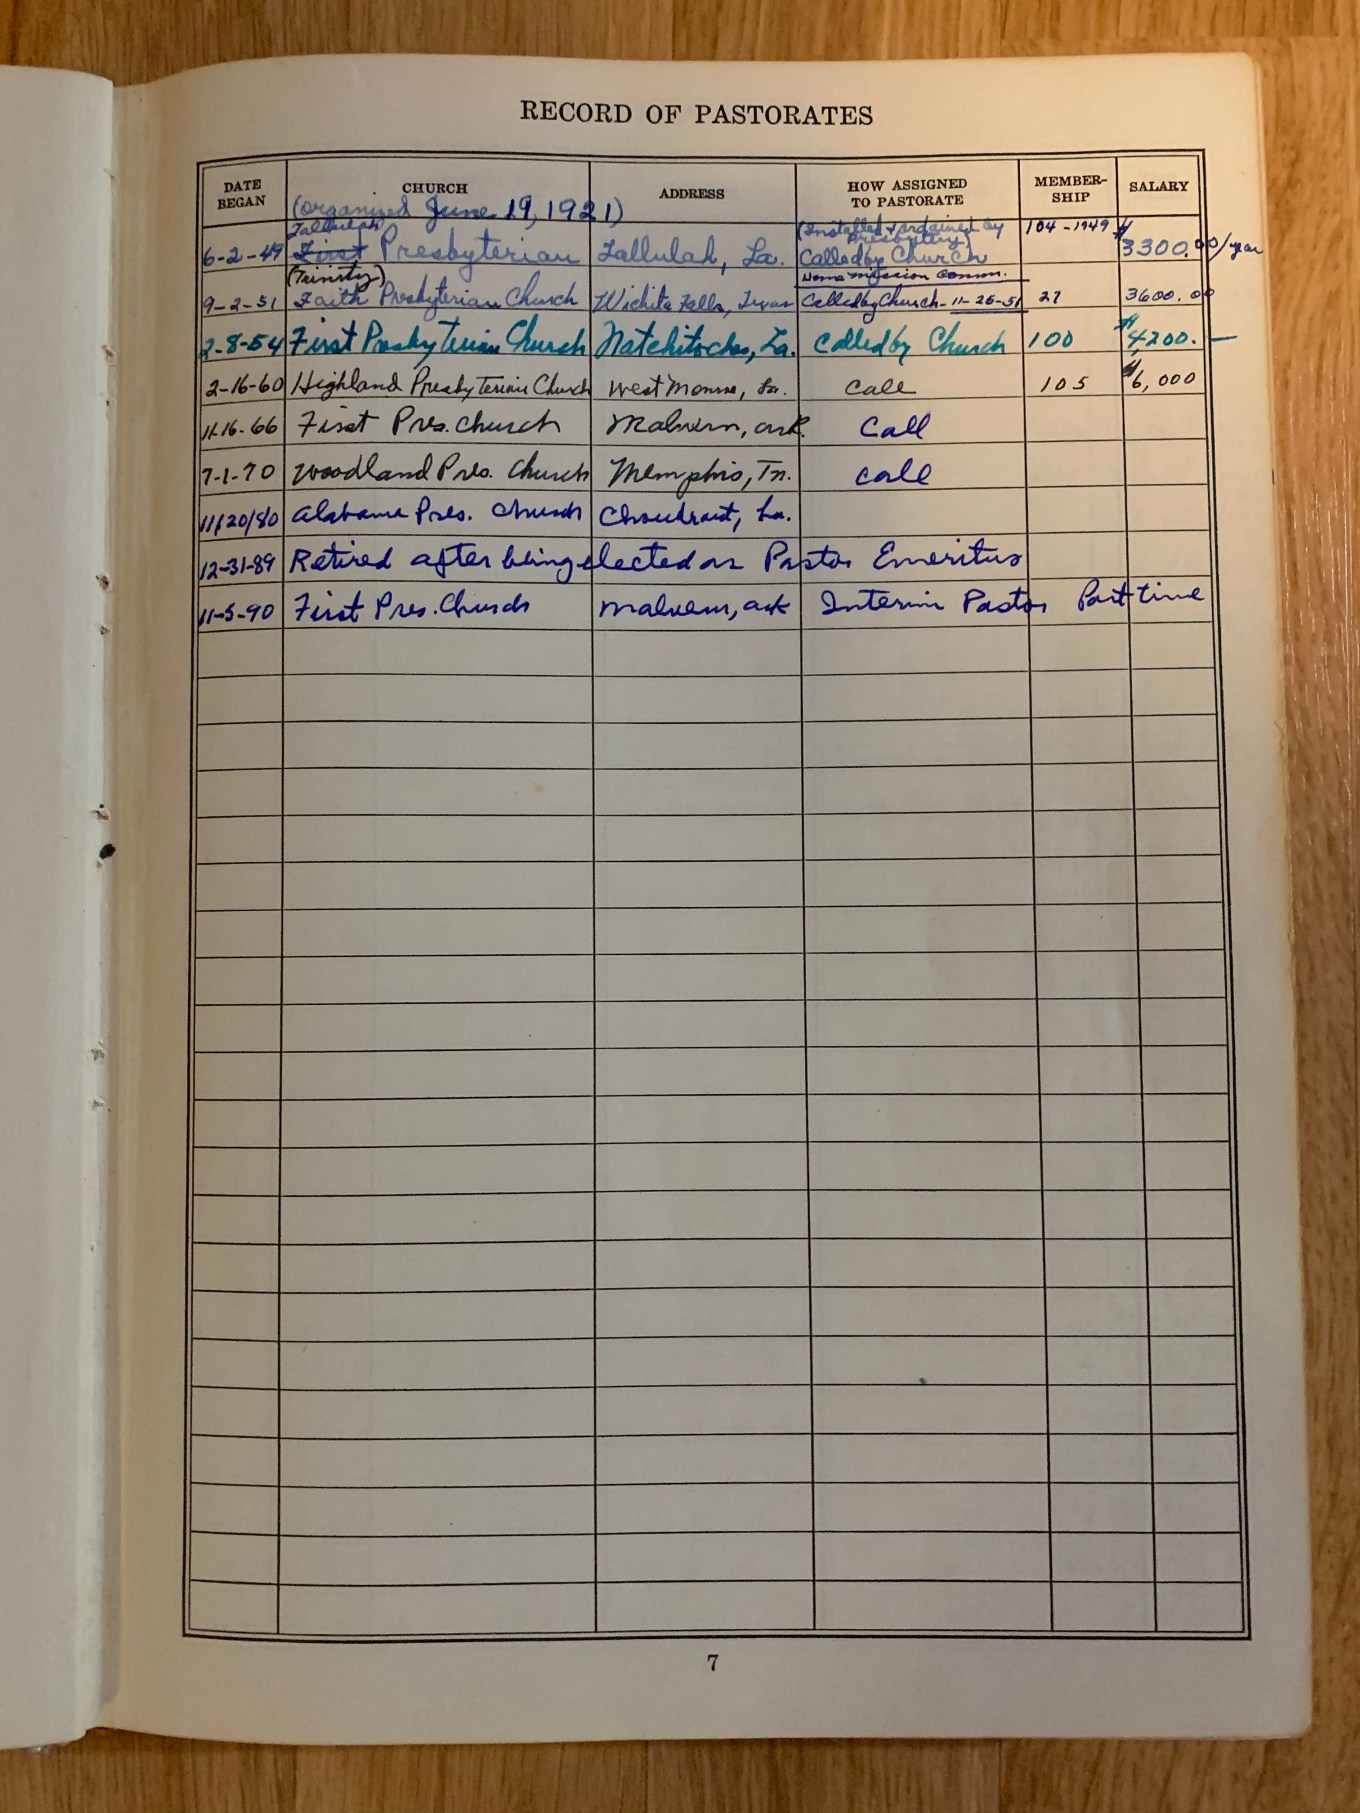 RECORD OF PASTORATES
DATE BEGAN CHURCH ADDRESS HOW ASSIGNED TO PASTORATE MEMBER-SHIP SALARY
(organized June 19, 1921)
Tallulah (Installed + ordained by Presbytery) 104-1949
6-2-49 First Presbyterian Tallulah, La. Called by Church $3300.00/year
(Trinity) Home Mission Comm.
9-2-51 Faith Presbyterian Church Wichita Falls, Texas Called by Church - 11-25-51 27 3600.00
2-8-54 First Presbyterian Church Natchitoches, La. Called by Church 100 $4200.—
2-16-60 Highland Presbyterian Church West Monroe, La. Call 105 $6,000
11-16-66 First Pres. Church Malvern, Ark. Call
7-1-70 Woodland Pres. Church Memphis, Tn. Call
11/20/80 Alabama Pres. Church Choudrant, La.
12-31-89 Retired after being elected as Pastor Emeritus
11-5-90 First Pres. Church Malvern, Ark Interim Pastor Part time
7